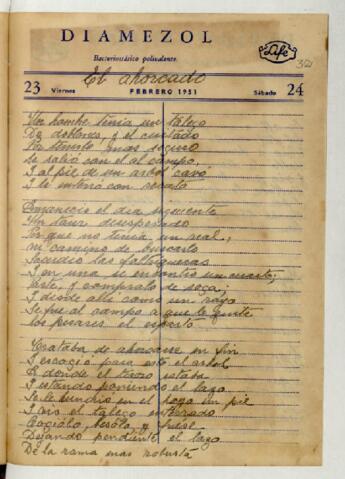 DIAMEZOL
Bacteriostático polivalente.
Life
El ahorcado
23 Viernes FEBRERO 1951 Sábado 24
Un hombre tenia un talego
De doblones, y el cuitado
Por tenerlo mas seguro
Se salio con el al campo,
I al pie de un arbol cavó
I le enterro con recato
Amanecio el dia siguiente
Un tahur, desesperado
Por que no tenia un real,
ni camino de buscarlo
Sacudio las faltriqueras
I en una se encontro un cuarto;
fuese, y compralo de soga;
I desde alli como un rayo
Se fue al campo a que le quite
los pesares el esparto
Trataba de ahorcarse en fin
I escogio para esto el arbol
En donde el tesoro estaba
I estando poniendo el lazo
Se le hundio en el un pie
I vio el talego enterrado
Cogiólo, besólo y fuese
Dejando pendiente el lazo
De la rama mas robusta